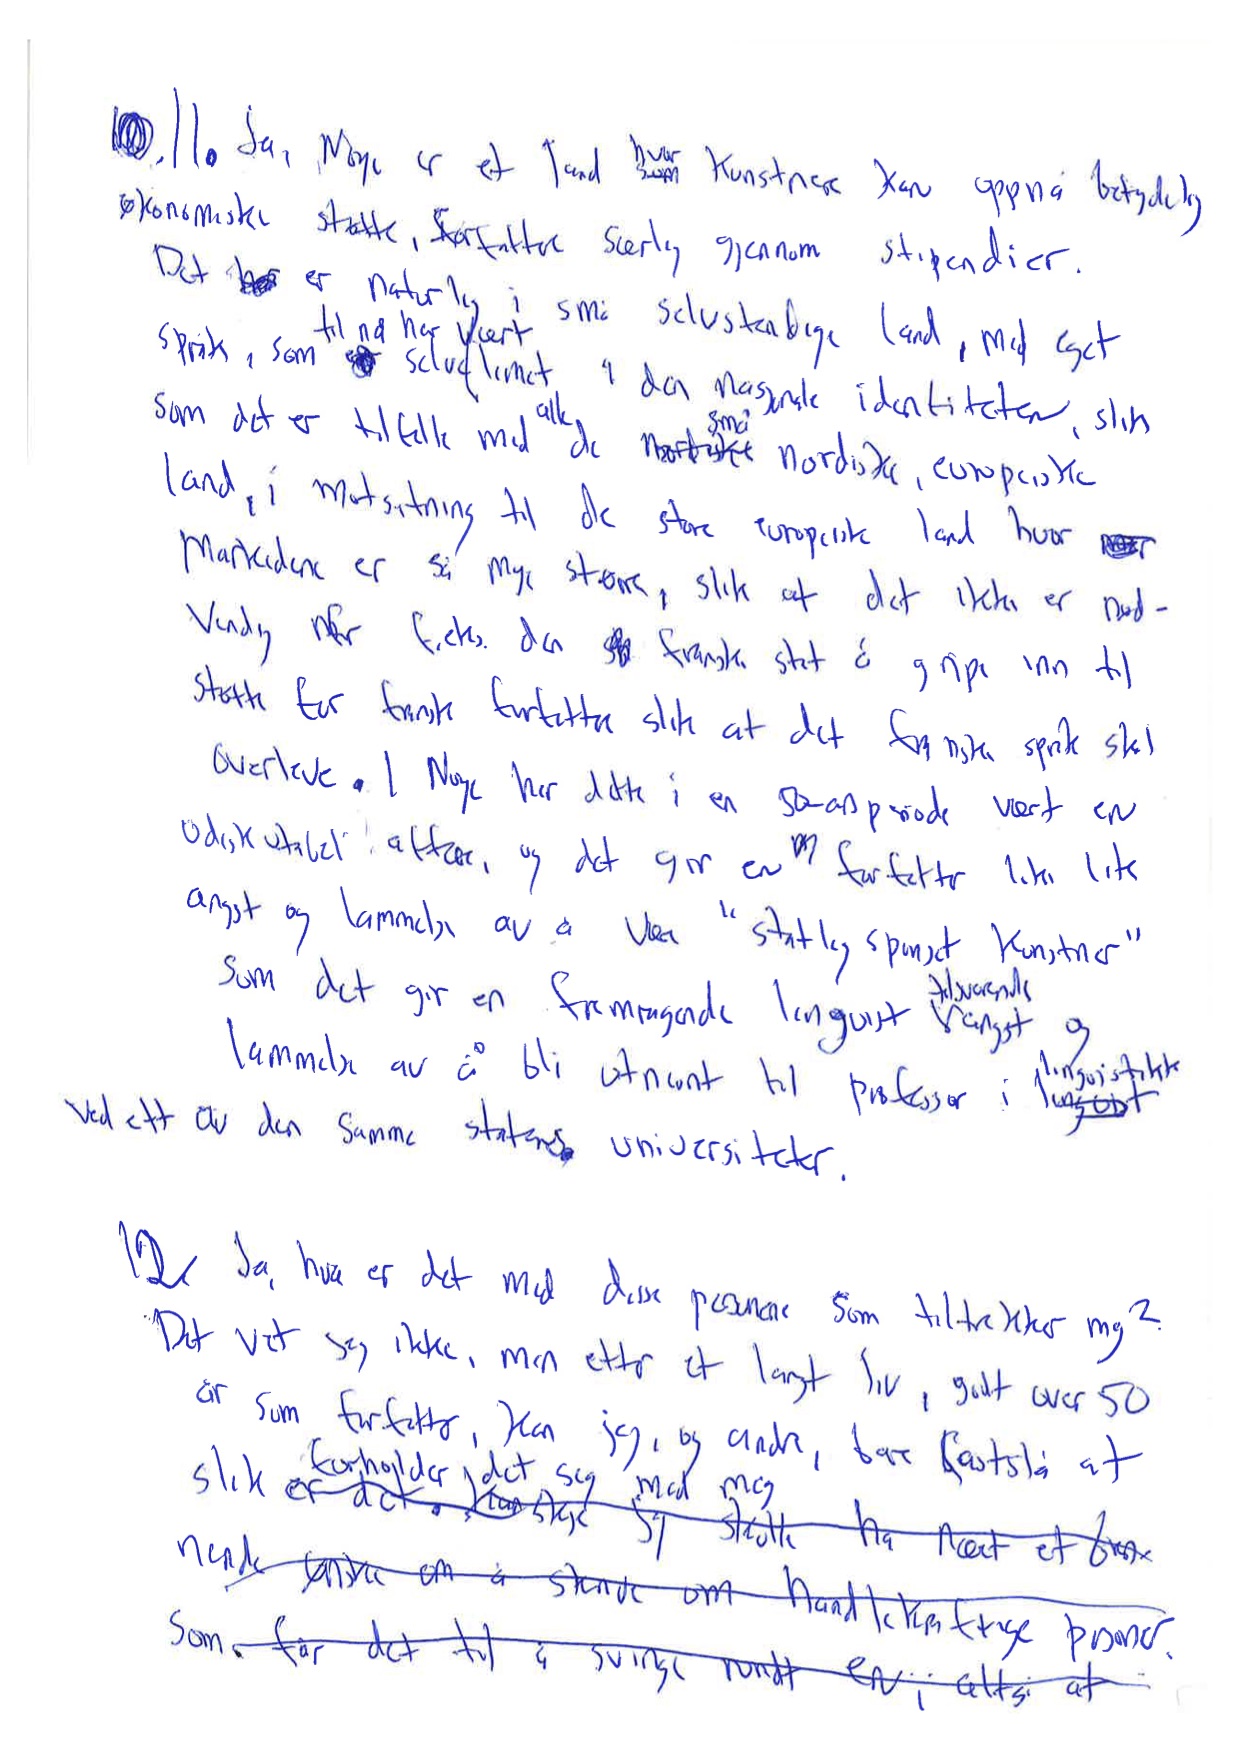 11. Ja, Norge er et land hvor kunstnere kan oppnå betydelig
økonomiske støtte, forfattere særlig gjennom stipendier.
Det er naturlig i små selvstendige land, med eget
språk, som til nå har vært selve limet i den nasjonale identiteten, slik
som det er tilfelle med alle de små nordiske, europeiske
land, i motsetning til de store europeiske land hvor
markedene er så mye større, slik at det ikke er nød-
vendig for f.eks. den franske stat å gripe inn til
støtte for franske forfattere slik at det franske språk skal
overleve. I Norge har dette i en 50-årsperiode vært en
udiskutabel affære, og det gir en forfatter like lite
angst og lammelse av å være "statlig sponset kunstner"
som det gir en fremragende lingvist tilsvarende angst og
lammelse av å bli utnevnt til professor i lingvistikk
ved ett av den samme statens universiteter.
12. Ja, hva er det med disse personene som tiltrekker meg?
Det vet jeg ikke, men etter et langt liv, godt over 50
år som forfatter, kan jeg, og andre, bare fastslå at
slik forholder det seg med meg
er det. Kanskje jeg skulle ha nært et bren-
nende ønske om å skrive om handlekraftige personer.
Som får det til å svinge rundt en, altså at